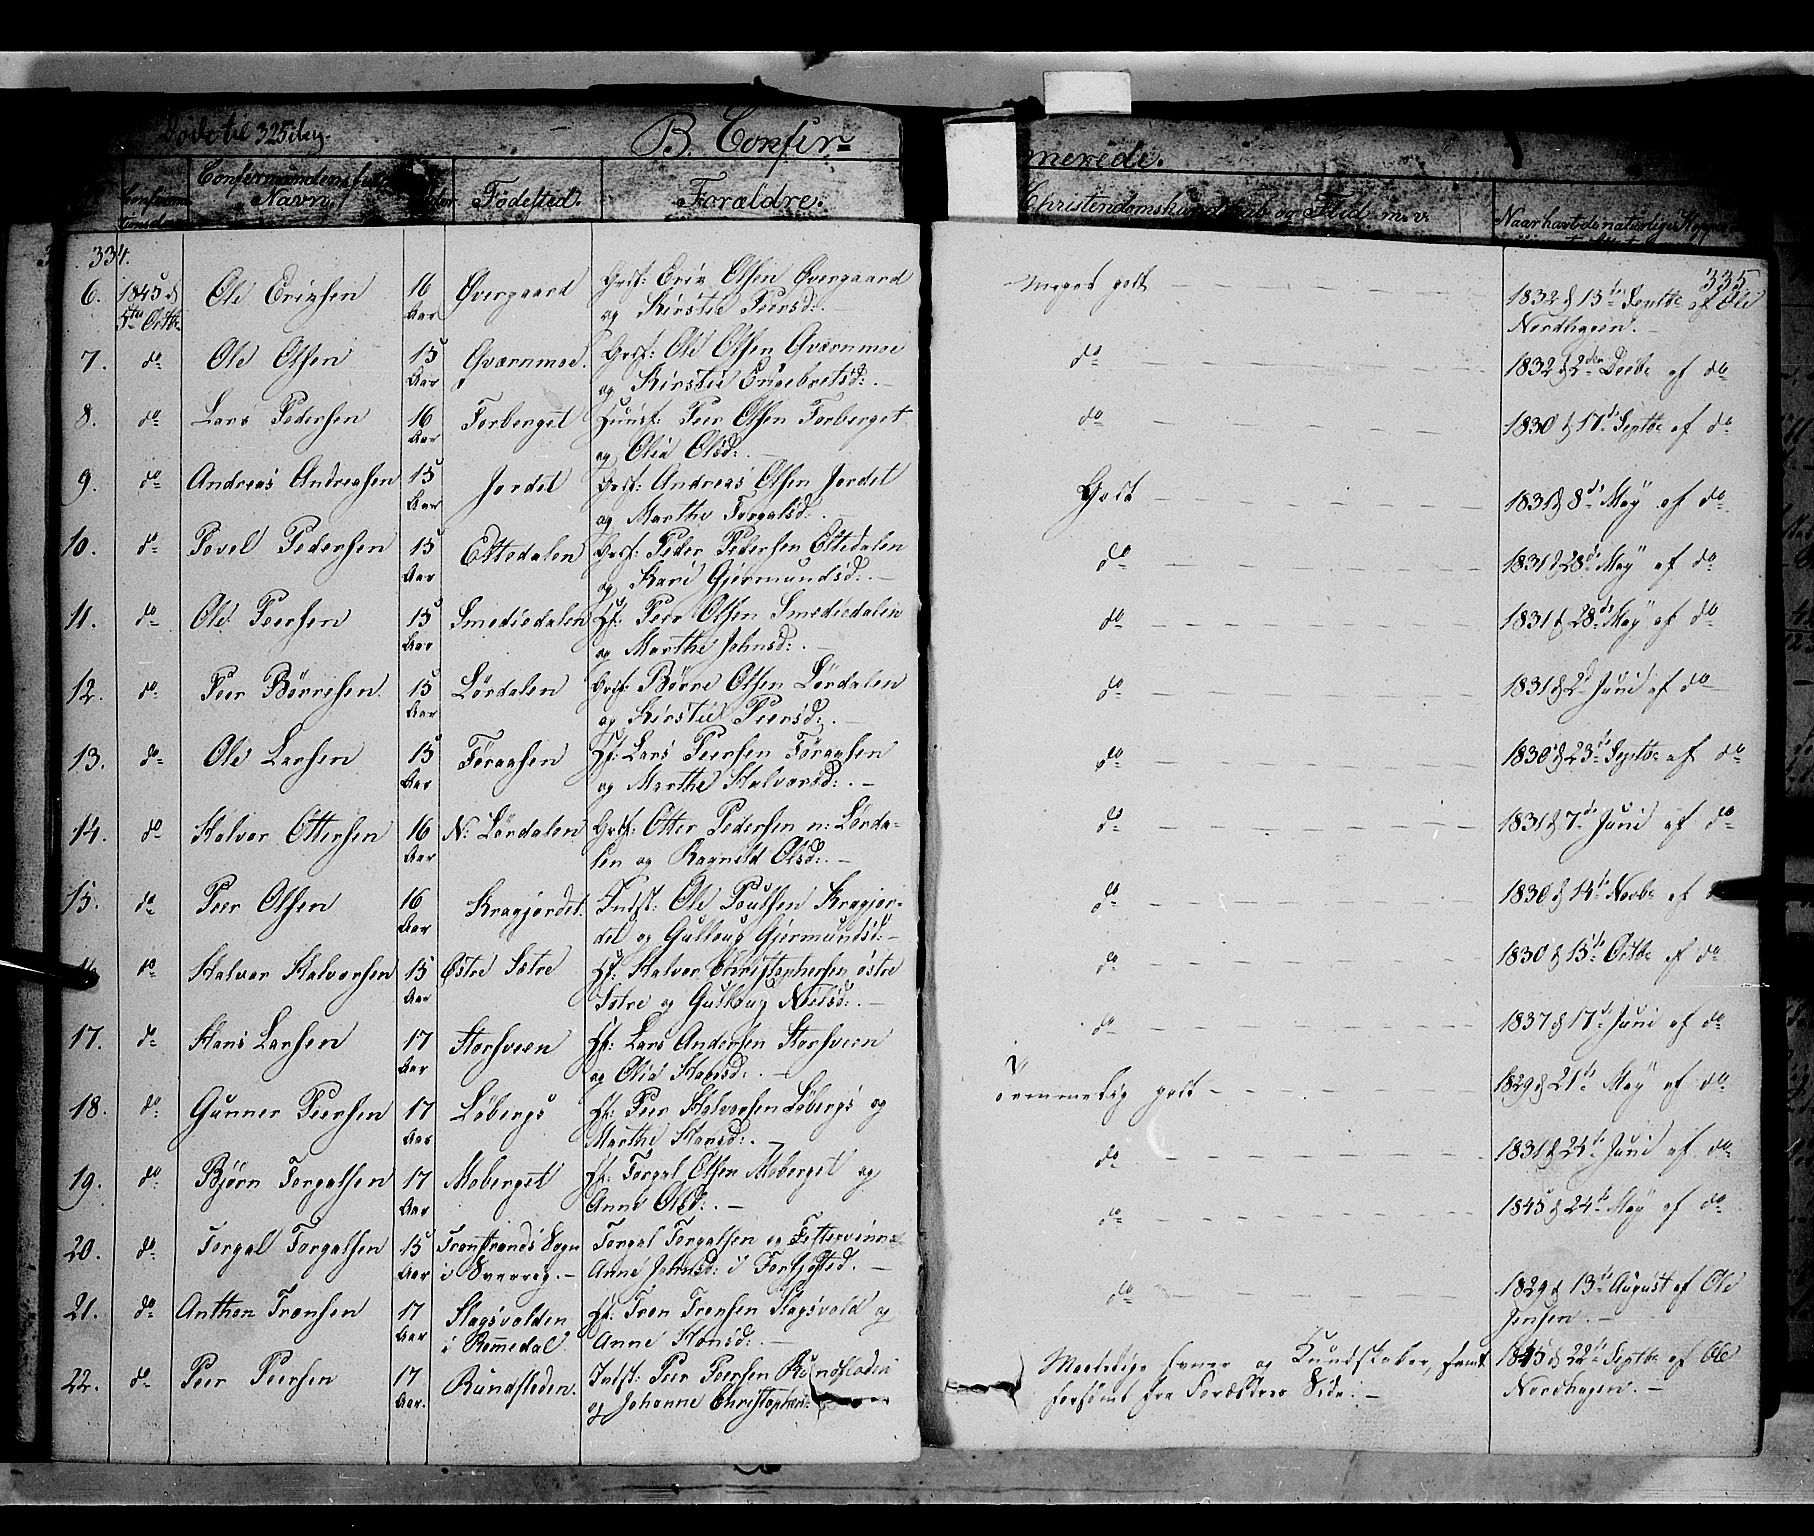 Døbte til 325 ibeg.
B. Confir=
merede.
Confirma-
tionsda
Confirmandens fu
Navn.
Alder
Fødested.
Forældre.
Christendomskundskab og Flid m. v.
Naar havt de naturlige Kopper
334.
335.
6. 1845 d
5te Octbr
Ole Erichsen 16 Aar Øvergaard Grsf: Erik Olsen Øvergaard
og Kirstie Peersd: Meget godt 1832 d 13de Septbr af Ole
Nordhagen.
7. do Ole Olsen 15 Aar Qværnmoe. Grsf: Ole Olsen Qværnmoe
og Kirstie Engebretsd: do 1832 d 2den Decbr af do
8. do Lars Pedersen 16 Aar Forberget Huusf: Peer Olsen Forberget
og Olia Olsd: do 1830 d 17d Septbr af do
9. do Andreas Andreasen 15 Aar Jordet Grsf: Andreas Olsen Jordet
og Marthe Torgalsd: Godt 1831 d 8de May af do
10. do Povel Pedersen 15 Aar Eltedalen Grsf: Peder Pedersen Eltedalen
og Kari Gjermundsd: do 1831 d 28de May af do
11. do Ole Peersen 15 Aar Smediedalen Hf: Peer Olsen Smediedalen
og Marthe Johnsd: do 1831 d 28de May af do
12. do Peer Børresen 15 Aar Lørdalen Grsf: Børre Olsen Lørdalen
og Kirstie Peersd: do 1831 d 2d Juni af do
13. do Ole Larsen 15 Aar Føraasen Hf: Lars Peersen Føraasen
og Marthe Halvorsd: do 1830 d 23de Septbr af do
14. do Halvor Ottersen 16 Aar N: Lørdalen Grsf: Otter Pedersen n: Lørda-
len og Ragnild Olsd: do 1831 d 7de Juni af do
15. do Peer Olsen 16 Aar Kragjordet. Indst: Ole Poulsen Kragjor-
det og Gulloug Gjermundsd: do 1830 d 14de Novbr af
16. do Halvor Halvorsen 15 Aar Østre Sætre Hf: Halvor Christophersen østre
Sætre og Gulloug Nielsd: do 1830 d 15de Octbr af do
17. do Hans Larsen 17 Aar Storsveen Hf: Lars Andersen Storsveen
og Olia Halvorsd: do 1837 d 17d Juni af do
18. do Gunner Peersen 17 Aar Løbergs Hf: Peer Halvorsen Løbergs og
Marthe Hansd: temmelig godt 1829 d 21de May af do
19. do Bjørn Torgalsen 17 Aar Moberget Hf: Torgal Olsen Moberget og
Anne Olsd: do 1831 d 24de Juni af do
20. do Torgal Torgalsen 15 Aar Transtrands Sogn
i Sverrig. Torgal Torgalsen og
Anne Johnsd: i do 1845 d 24de May af do
21. do Anthon Tronsen 17 Aar Slagsvolden
i Rommedal Hf: Tron Tronsen Slagsvold og
Anne Hansd: do 1829 d 13de August af Ole
Jensen.
22. do Peer Peersen 17 Aar. Rundfloden. Indst: Peer Peersen Rundfloden
og Johanne Christophers: Maadelige Evner og Kundskaber, samt
forsømt fra Forældres Side. 1845 d 22de Septbr af Ole
Nordhagen.